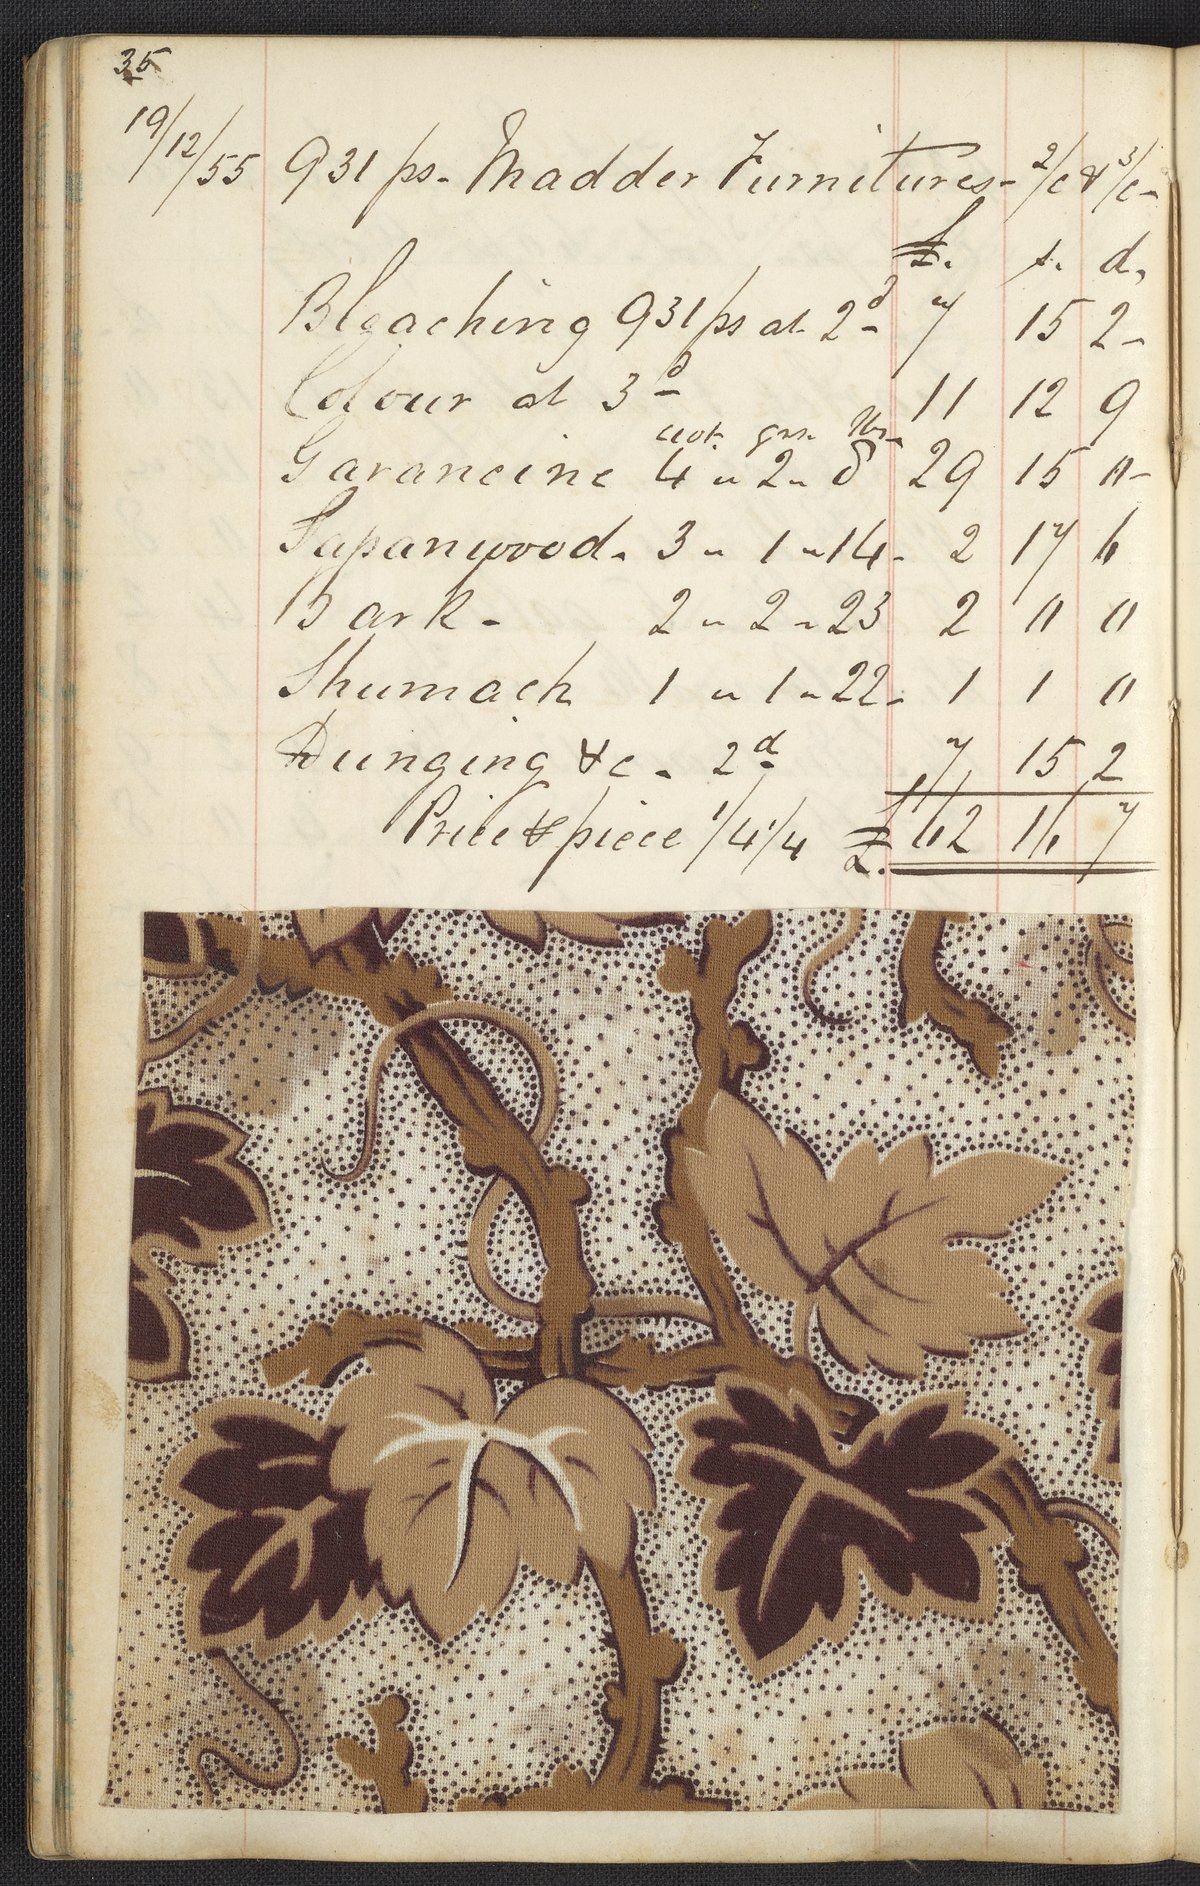 35
19/12/55 931 ps. Madder Furnitures - 2/c & 3/c -
£. s. d.
Bleaching 931 ps at 2d 7 15 2 -
Colour at 3d 11 12 9
cwt. qrs. lbs.
Garancine 4 " 2 " 8 29 15 " -
Sapanwood. 3 " 1 " 14 - 2 17 6
Bark - 2 " 2 " 23 2 " "
Shumach 1 " 1 " 22 - 1 1 "
Dunging &c. 2d 7 15 2
Price ⅌ piece 1/4 1/4 £ 62 16 7